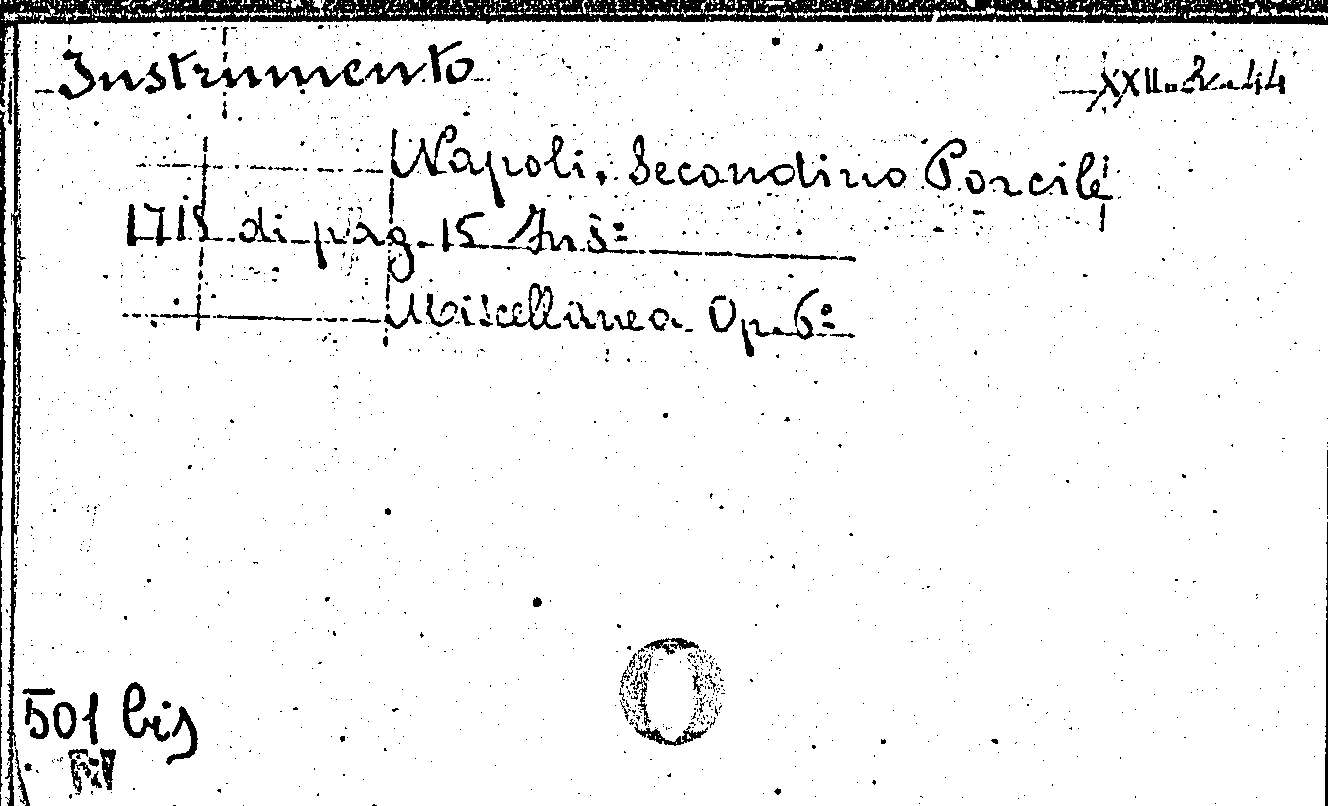 Instrumento
XXII. 2. 44
Napoli. Secondino Porcile
1718 di pag. 15 In 8º
Miscellanea Op. 6ª
501 bis